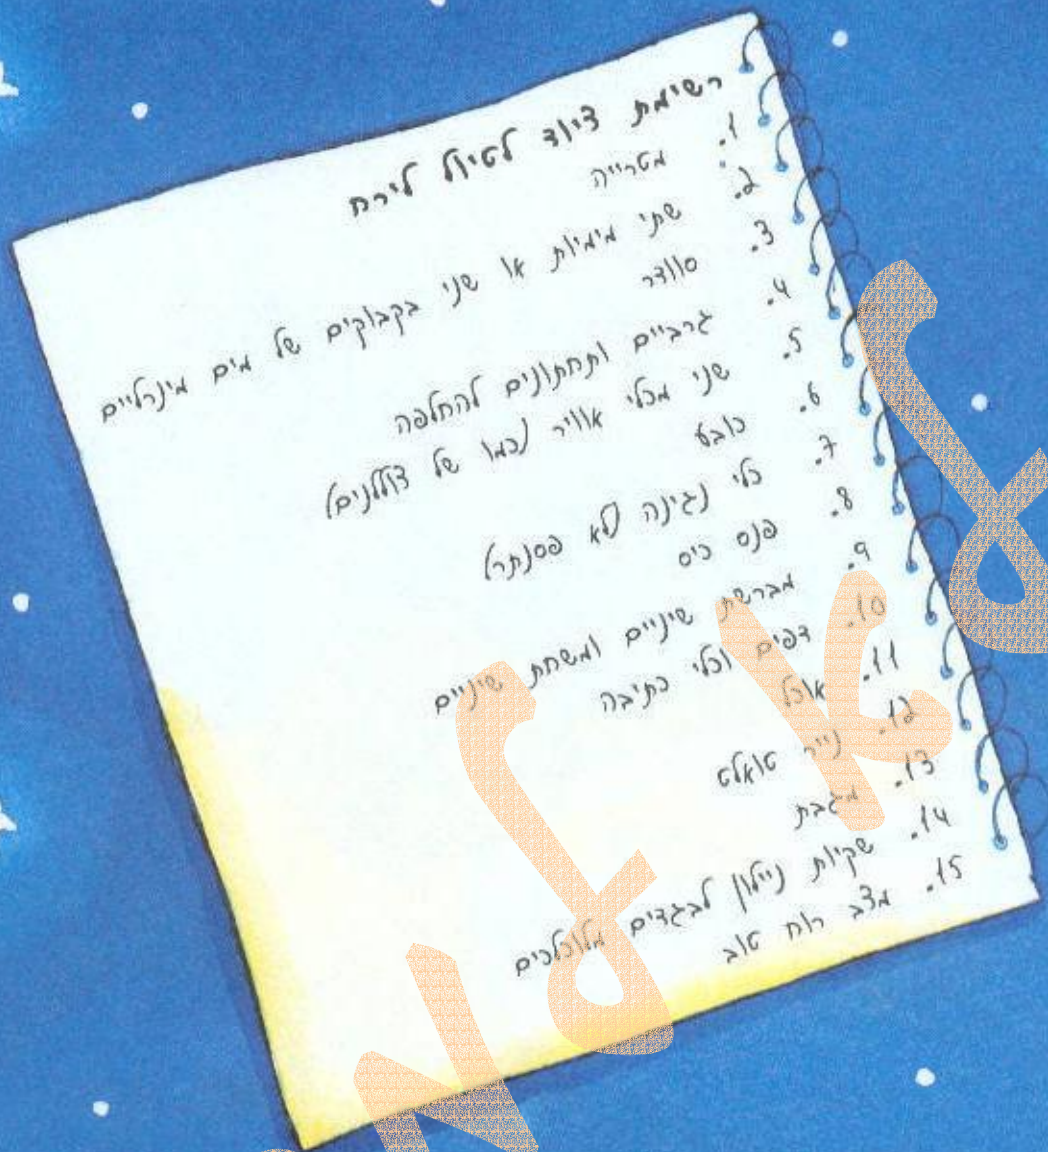 רשימת ציוד לטיול לירח
1. מטרייה
2. שתי מימיות או שני בקבוקים של מים מינרליים
3. סוודר
4. גרביים ותחתונים להחלפה
5. שני מכלי אוויר (כמו של צוללנים)
6. כובע
7. כלי נגינה (לא פסנתר)
8. פנס כיס
9. מברשת שיניים ומשחת שיניים
10. דפים וכלי כתיבה
11. אוכל
12. נייר טואלט
13. מגבת
14. שקיות ניילון לבגדים מלוכלכים
15. מצב רוח טוב